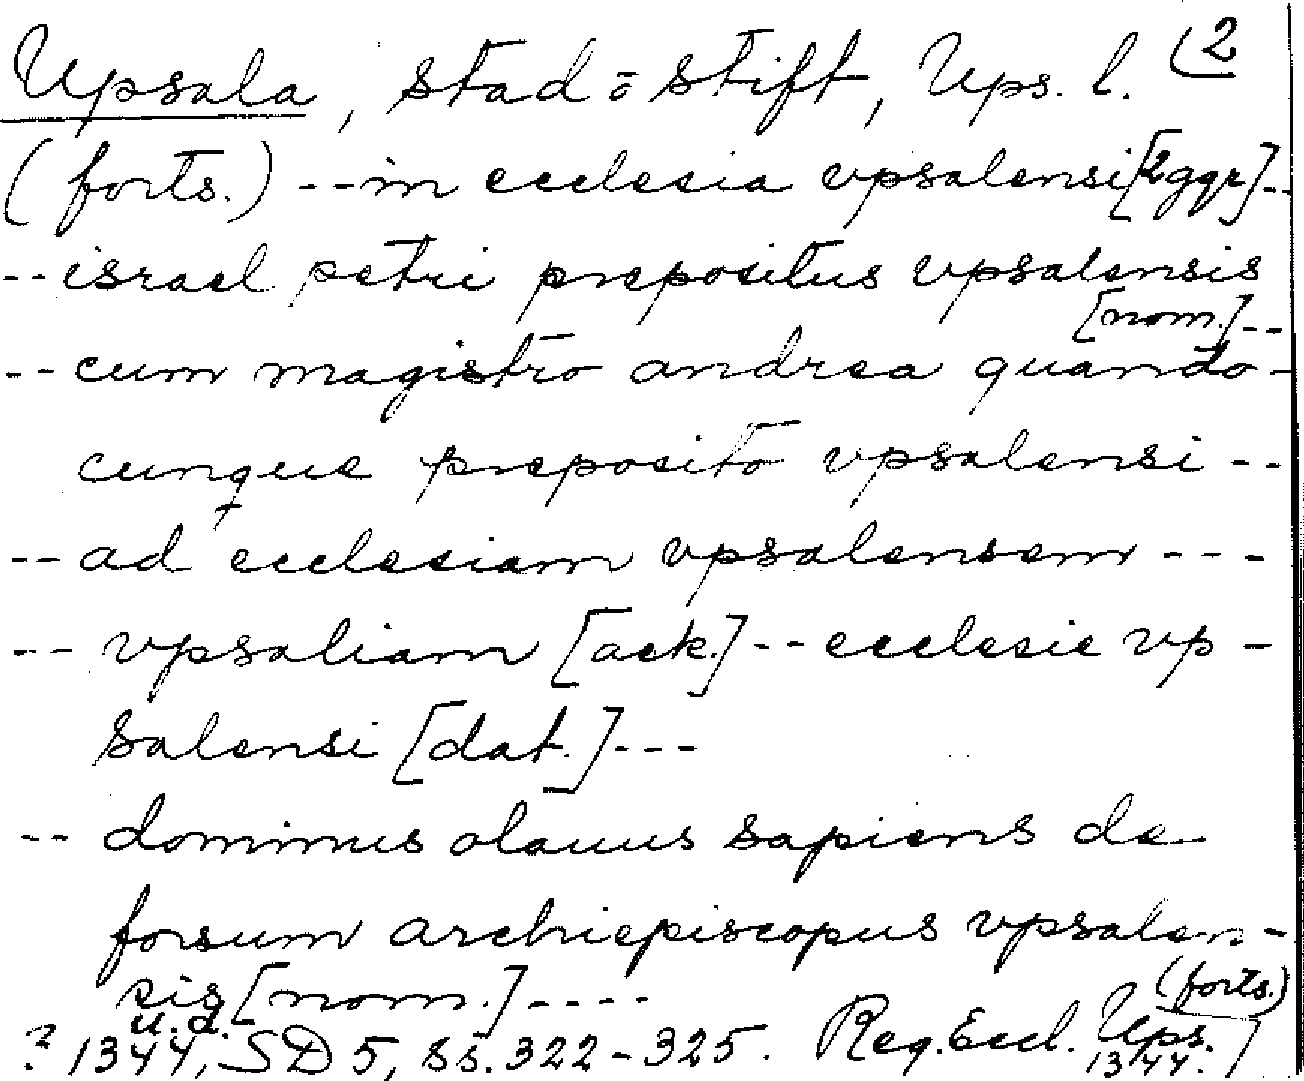 Upsala, stad o stift, Ups. l. (2
(forts.) --in ecclesia vpsalensi [2 ggr]--
--israel petri prepositus vpsalensis
[nom.]--
--cum magistro andrea quando-
cunque preposito vpsalensi --
--ad ecclesiam vpsalensem ---
-- vpsaliam [ack.] -- ecclesie vp-
salensi [dat.]---
-- dominus olauus sapiens de
forsum archiepiscopus vpsalen-
sis [nom.]----
(forts.)
u. d.
? 1344, SD 5, ss. 322-325. Reg. Eccl. Ups.
1344.